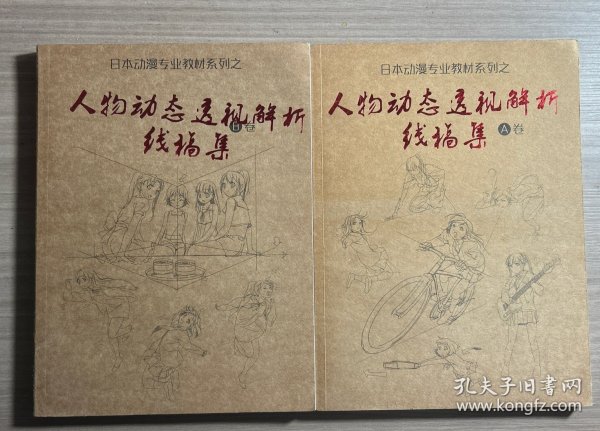 日本动漫专业教材系列之
人物动态透视解析
线稿集 B卷
日本动漫专业教材系列之
人物动态透视解析
线稿集 A卷
孔夫子旧书网
www.kongfz.com